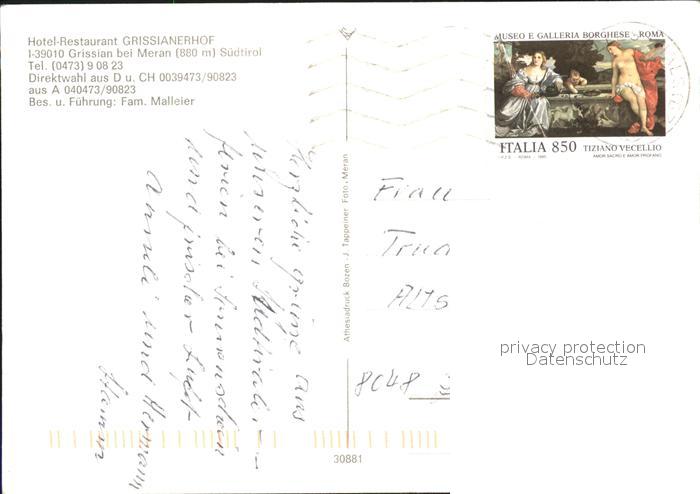 Hotel-Restaurant GRISSIANERHOF
I-39010 Grissian bei Meran (880 m) Südtirol
Tel. (0473) 9 08 23
Direktwahl aus D u. CH 0039473/90823
aus A 040473/90823
Bes. u. Führung: Fam. Malleier
MUSEO E GALLERIA BORGHESE - ROMA
ITALIA 850 TIZIANO VECELLIO
I.P.Z.S. - ROMA - 1995 AMOR SACRO E AMOR PROFANO
Herzliche Grüsse aus
unseren
ferien bei Sonnenschein
und frischer Luft
und Hermann
Athesiadruck Bozen - J. Tappeiner Foto, Meran
Frau
Trud
Alts
8048
privacy protection
Datenschutz
30881